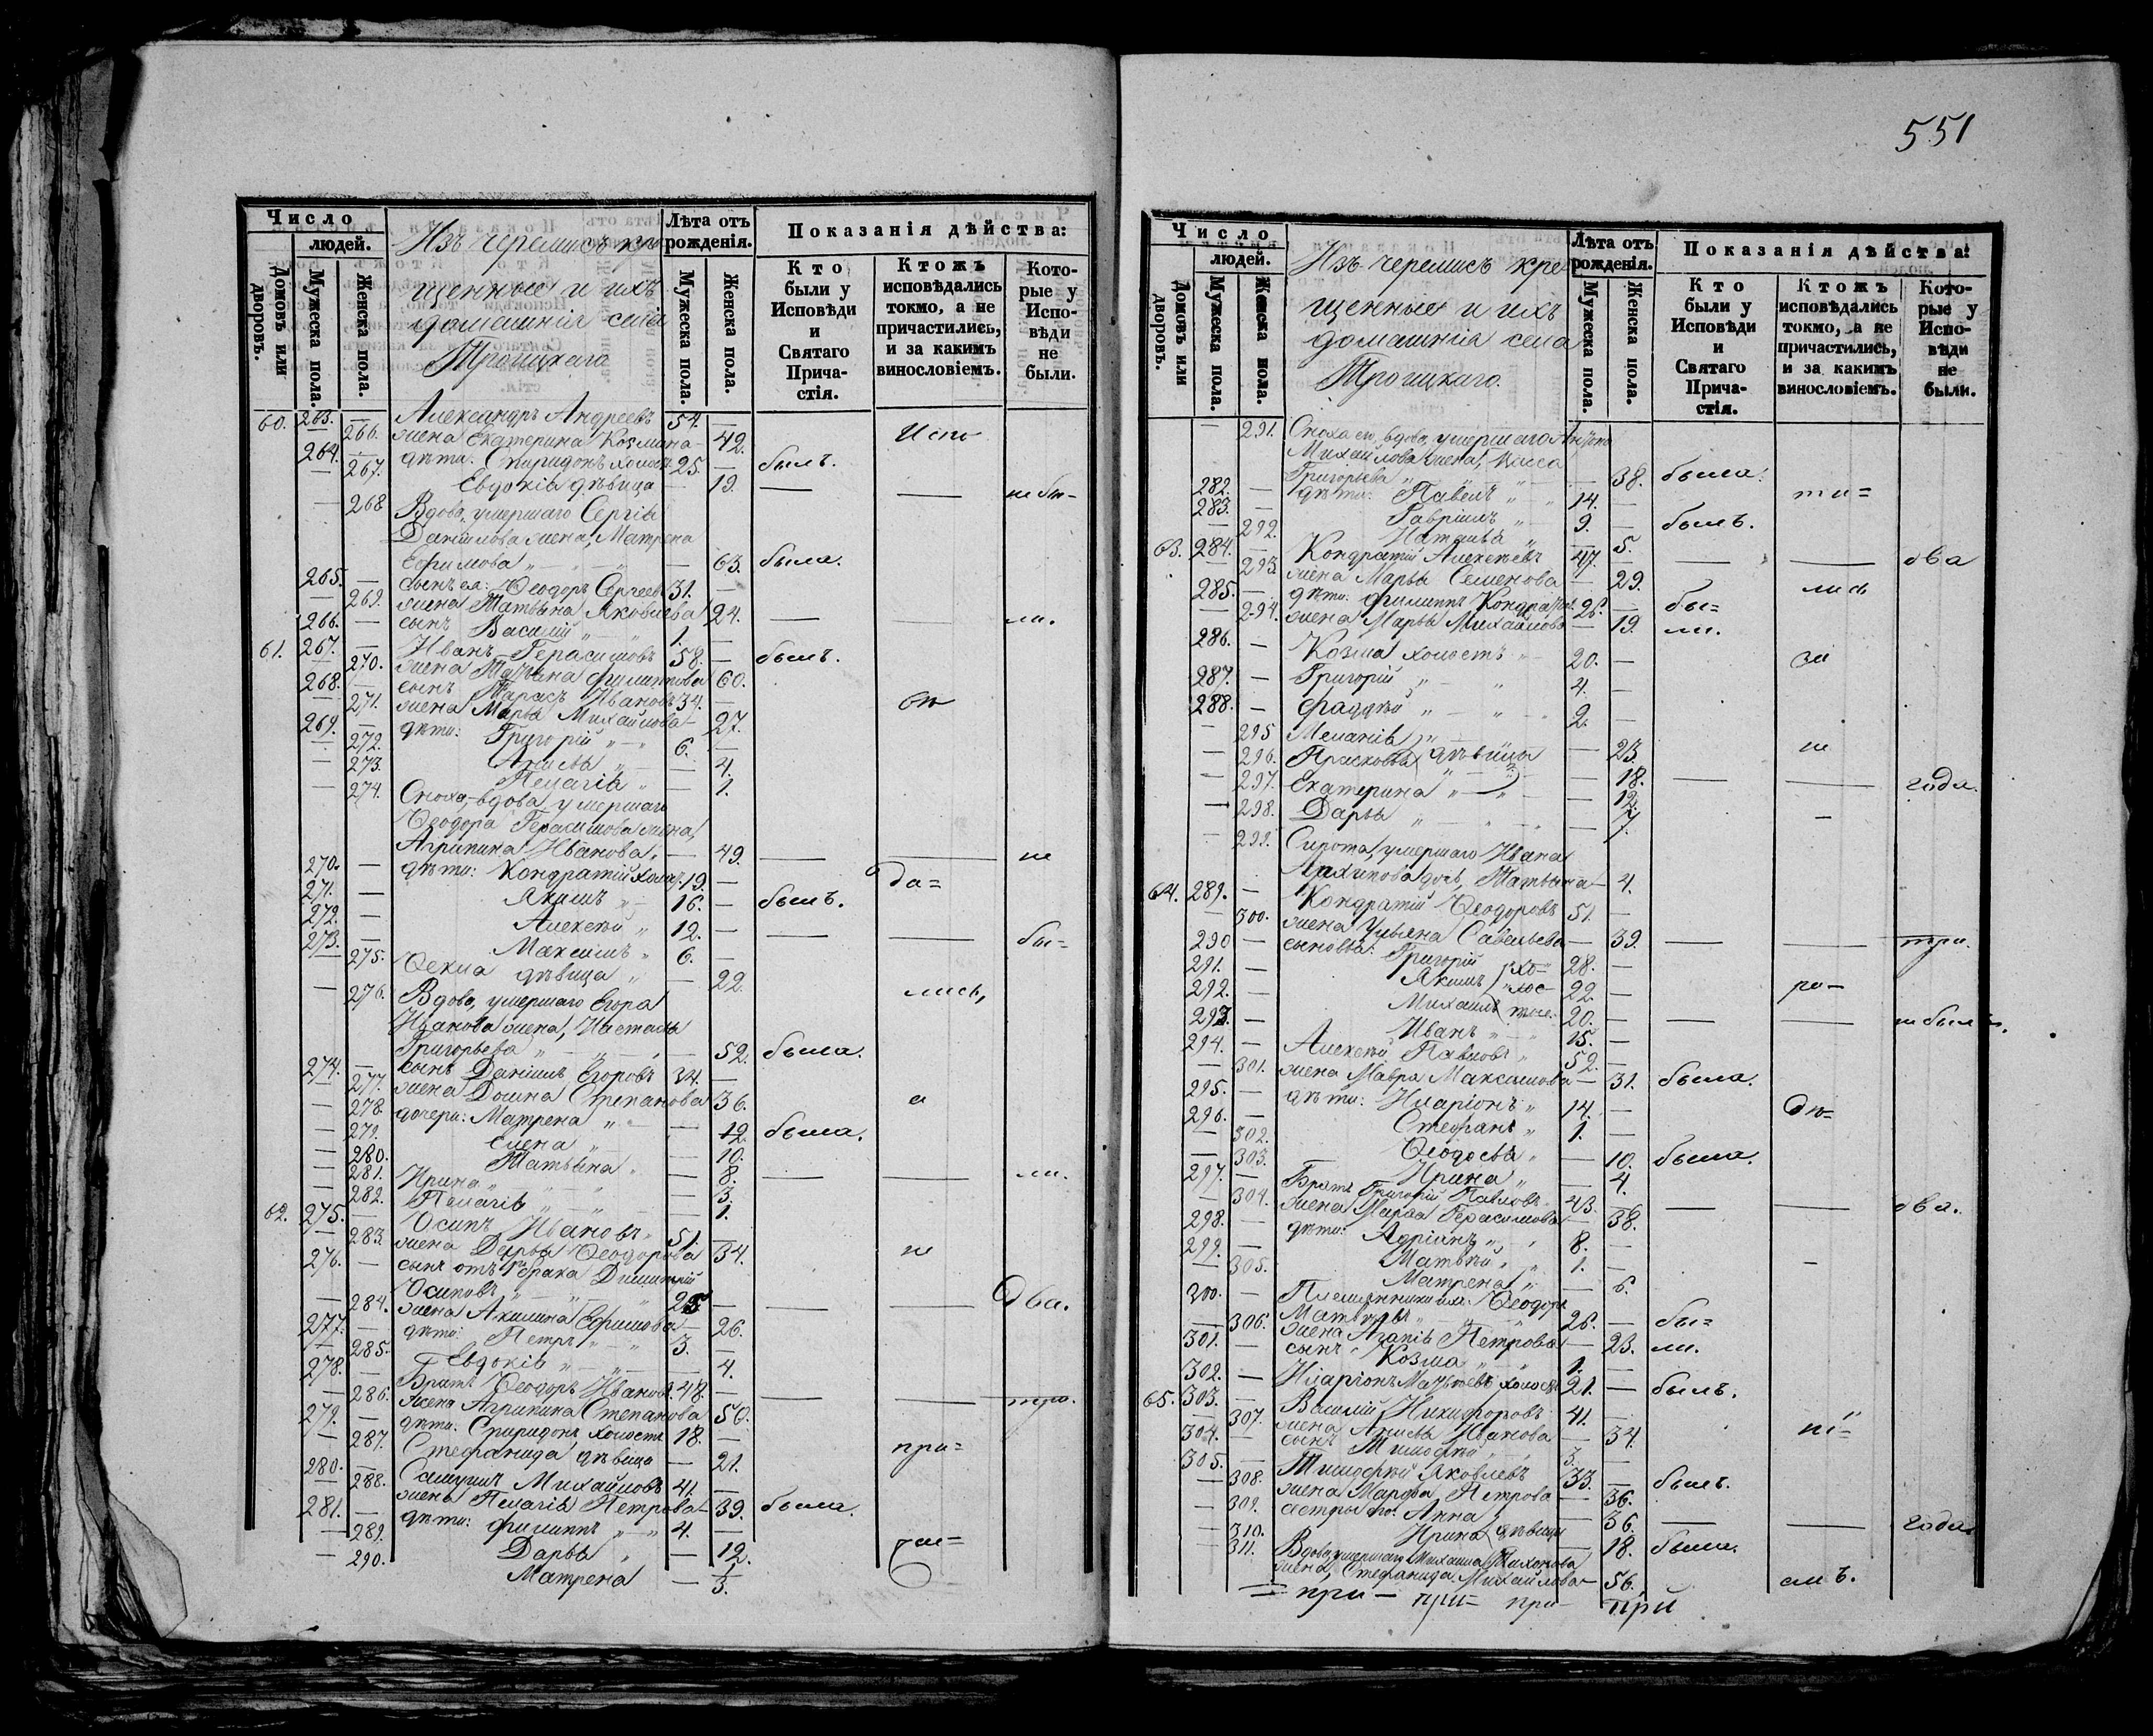 551
Число
людей.
Домовъ или дворовъ.
Мужеска пола.
Женска пола.
Изъ черемисъ кре
щенные и ихъ
домашнія села
Троицкаго
Лѣта отъ рожденія.
Мужеска пола.
Женска пола.
Показанія дѣйства:
Кто были у Исповѣди и Святаго Прича-стія.
Ктожъ исповѣдались токмо, а не причастились, и за какимъ винословіемъ.
Кото-рые у Испо-вѣди не были.
60. 263. — Александръ Андреевъ 54. —
— 266. жена Екатерина Козмина — 42. Испо
264. — дѣти: Спиридонъ холостъ 25. — былъ.
— 267. Евдокія дѣвица — 19. — — не бы=
— 268 Вдова, умершаго Сергія
Даніилова жена, Матрена
Ефимова — 63. была.
265. — сынъ ея: Ѳеодоръ Сергеевъ 31. —
— 269. жена Татьяна Яковлева 24. — — ли.
266. — сынъ Василій 1. —
61. 267. — Иванъ Герасимовъ 58. — былъ.
— 270. жена Татьяна Филиппова 60.
268. — сынъ Тарасъ Ивановъ 34. —
— 271. жена Марья Михайлова — 27. вѣ
269. — дѣти: Григорій 6. —
— 272. Анисья — 4.
— 273. Пелагія — 1.
— 274. Сноха, вдова умершаго
Ѳеодора Герасимова жена,
Агрипина Иванова — 49. — — не
270. — дѣти: Кондратій холостъ 19. — да=
271. — Якимъ 16. — былъ.
272. — Алексѣй 12. — — — бы=
273. — Максимъ 6. —
— 275. Ѳекла дѣвица — 22.
— 276. Вдова, умершаго Егора лись,
Иванова жена, Настасья
Григорьева — 52. была.
274. — сынъ Даніилъ Егоровъ 34. —
— 277. жена Домна Степанова 36. а
— 278. дочери: Матрена — 12 была.
— 279. Елена — 10.
— 280. Татьяна — 8. — — ли.
— 281. Ирина — 3.
— 282. Пелагія — 1.
62. 275. — Осипъ Ивановъ 51. —
— 283. жена Дарья Ѳеодорова 34. не
276. — сынъ отъ 1го брака Димитрій
Осиповъ 25 — — — Два.
— 284. жена Акилина Ефимова — 26.
277. — дѣти: Петръ 3. —
— 285. Евдокія — 4.
278. — Братъ Ѳеодоръ Ивановъ 48. — — — три.
— 286. жена Агрипина Степанова 50.
279. — дѣти: Спиридонъ холостъ 18. —
— 287. Стефанида дѣвица — 21. при=
280. — Самуилъ Михайловъ 41. —
— 288. жена Пелагія Петрова — 39. была.
281. — дѣти: Филиппъ 4. —
— 289. Дарья — 12.
— 290. Матрена — 3.
Число
людей.
Домовъ или дворовъ.
Мужеска пола.
Женска пола.
Изъ черемисъ кре
щенные и ихъ
домашнія села
Троицкаго.
Лѣта отъ рожденія.
Мужеска пола.
Женска пола.
Показанія дѣйства:
Кто были у Исповѣди и Святаго Прича-стія.
Ктожъ исповѣдались токмо, а не причастились, и за какимъ винословіемъ.
Кото-рые у Испо-вѣди не были.
— 291. Сноха его, вдова, умершаго
Михайлова жена,
Григорьева — 38. была.
282. — дѣти: Павелъ 14. — ти=
283. — Гавріилъ 9. — былъ.
— 292. Наталья — 5.
63. 284. — Кондратій Алексѣевъ 47. — — — два
— 293. жена Марья Семенова — 29.
285. — дѣти: Филиппъ Кондратьевъ 26. — бы= лись
— 294. жена Марья Михайлова — 19. ли.
286. — Козма холостъ 20. — за
287. — Григорій 4. —
288. — Фаддѣй 2. —
— 295 Меланія — 23. не
— 296. Прасковья дѣвицы — 18.
— 297. Екатерина — 12. — — года.
— 298. Дарья — 7.
— 299. Сирота, умершаго Ивана
Архипова дочь, Татьяна — 4.
64. 289. — Кондратій Ѳеодоровъ 51. —
— 300. жена Ульяна Савельева — 39. — — три.
290 — сыновья: Григорій 28. —
291. — Якимъ хо= 22. — ра=
292. — Михаилъ лос= 20. — — — не были.
293. — Иванъ 15. —
294. — Алексѣй Павловъ 52. —
— 301. жена Мавра Максимова — 31. была.
295. — дѣти: Иларіонъ 14. —
296. — Стефанъ 1. — дѣ=
— 302. Ѳеодосья — 10. была.
— 303. Ирина — 4.
297. — Братъ Григорій Павловъ 43. — — — два.
— 304. жена Марѳа Герасимова — 38.
298. — дѣти: Адріанъ 8. —
299. — Матвѣй 1. —
— 305. Матрена — 6.
300. — Племянники ихъ: Ѳеодоръ
Матвѣевъ 26. — бы=
— 306. жена Агапія Петрова — 23. ли.
301. — сынъ Козма 1. —
302. — Иларіонъ Матвѣевъ холостъ 21. — былъ.
65. 303. — Василій Никифоровъ 41. —
— 307. жена Анисья Иванова — 34. ні=
304. — сынъ Тимофѣй 3. —
305. — Тимофѣй Яковлевъ 33. — былъ.
— 308. жена Марѳа Петрова — 36.
— 309. сестры его: Анна — 36. — — года.
— 310. Ирина дѣвицы — 18. была.
— 311. Вдова, умершаго Михаила Тихонова
жена, Стефанида Михайлова — 56. емъ.
= при — при= при — при